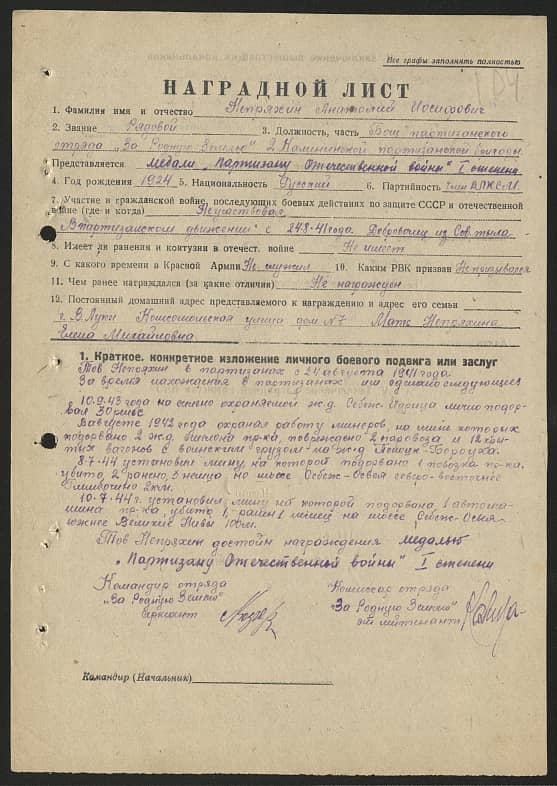 Все графы заполнять полностью
НАГРАДНОЙ ЛИСТ
1. Фамилия имя и отчество Непряхин Анатолий Иосифович
2. Звание Рядовой 3. Должность, часть Боец партизанского
отряда "За Родную Землю" 2 Калининской партизанской бригады
Представляется медали "Партизану Отечественной войны" I степени
4. Год рождения 1924 5. Национальность Русский 6. Партийность член ВЛКСМ
7. Участие и гражданской войне, последующих боевых действиях по защите СССР и отечественной
войне (где и когда) Не участвовал
В партизанском движении с 24.8.41 года. Доброволец из Сов. тыла
8. Имеет ли ранения и контузии в отечест. войне Не имеет
9. С какого времени в Красной Армии Не служил 10. Каким РВК призван Не призывался
11. Чем ранее награждался (за какие отличия) Не награжден
12. Постоянный домашний адрес представляемого к награждению и адрес его семьи
г. В.Луки Комсомольская улица дом №7 Мать Непряхина
Елена Михайловна
1. Краткое, конкретное изложение личного боевого подвига или заслуг
Тов Непряхин в партизанах с 24 августа 1941 года.
За время нахождения в партизанах им сделано следующее
10.9.43 года на сильно охраняемой ж.д. Себеж-Идрица лично подор-
вал 30 рельс
В августе 1942 года охранял работу минеров, на мине которых
подорвано 2 ж.д. эшелона пр-ка, повреждено 2 паровоза и 12 кры-
тых вагонов с воинским грузом на ж.д Полоцк-Боровуха.
8-7-44 установил мину, на которой подорвано 1 повозка пр-ка,
убито 2, ранено 3 немца, на шоссе Себеж-Освея северо-восточнее
2км.
10.7.44 г. установил мину на которой подорвана 1 автома-
шина пр-ка, убито 1, ранен 1 немец на шоссе Себеж-Освея
южнее Великие Нивы 100м.
Тов Непряхин достоин награждения медалью
"Партизану Отечественной войны" I степени
Командир отряда Комиссар отряда
"За Родную Землю" "За Родную Землю"
сержант лейтенант
Командир (Начальник)